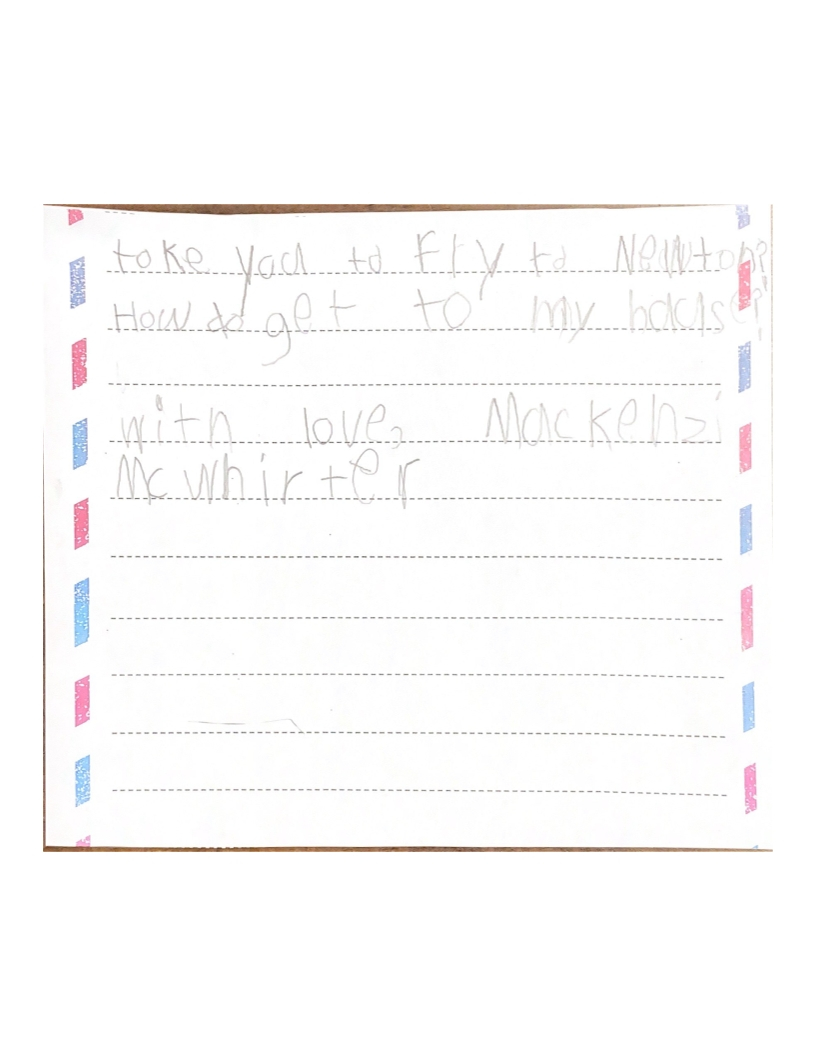 take you to Fly to Newton?
How do get to my house?
with love, Mackenzi
Mcwhirter